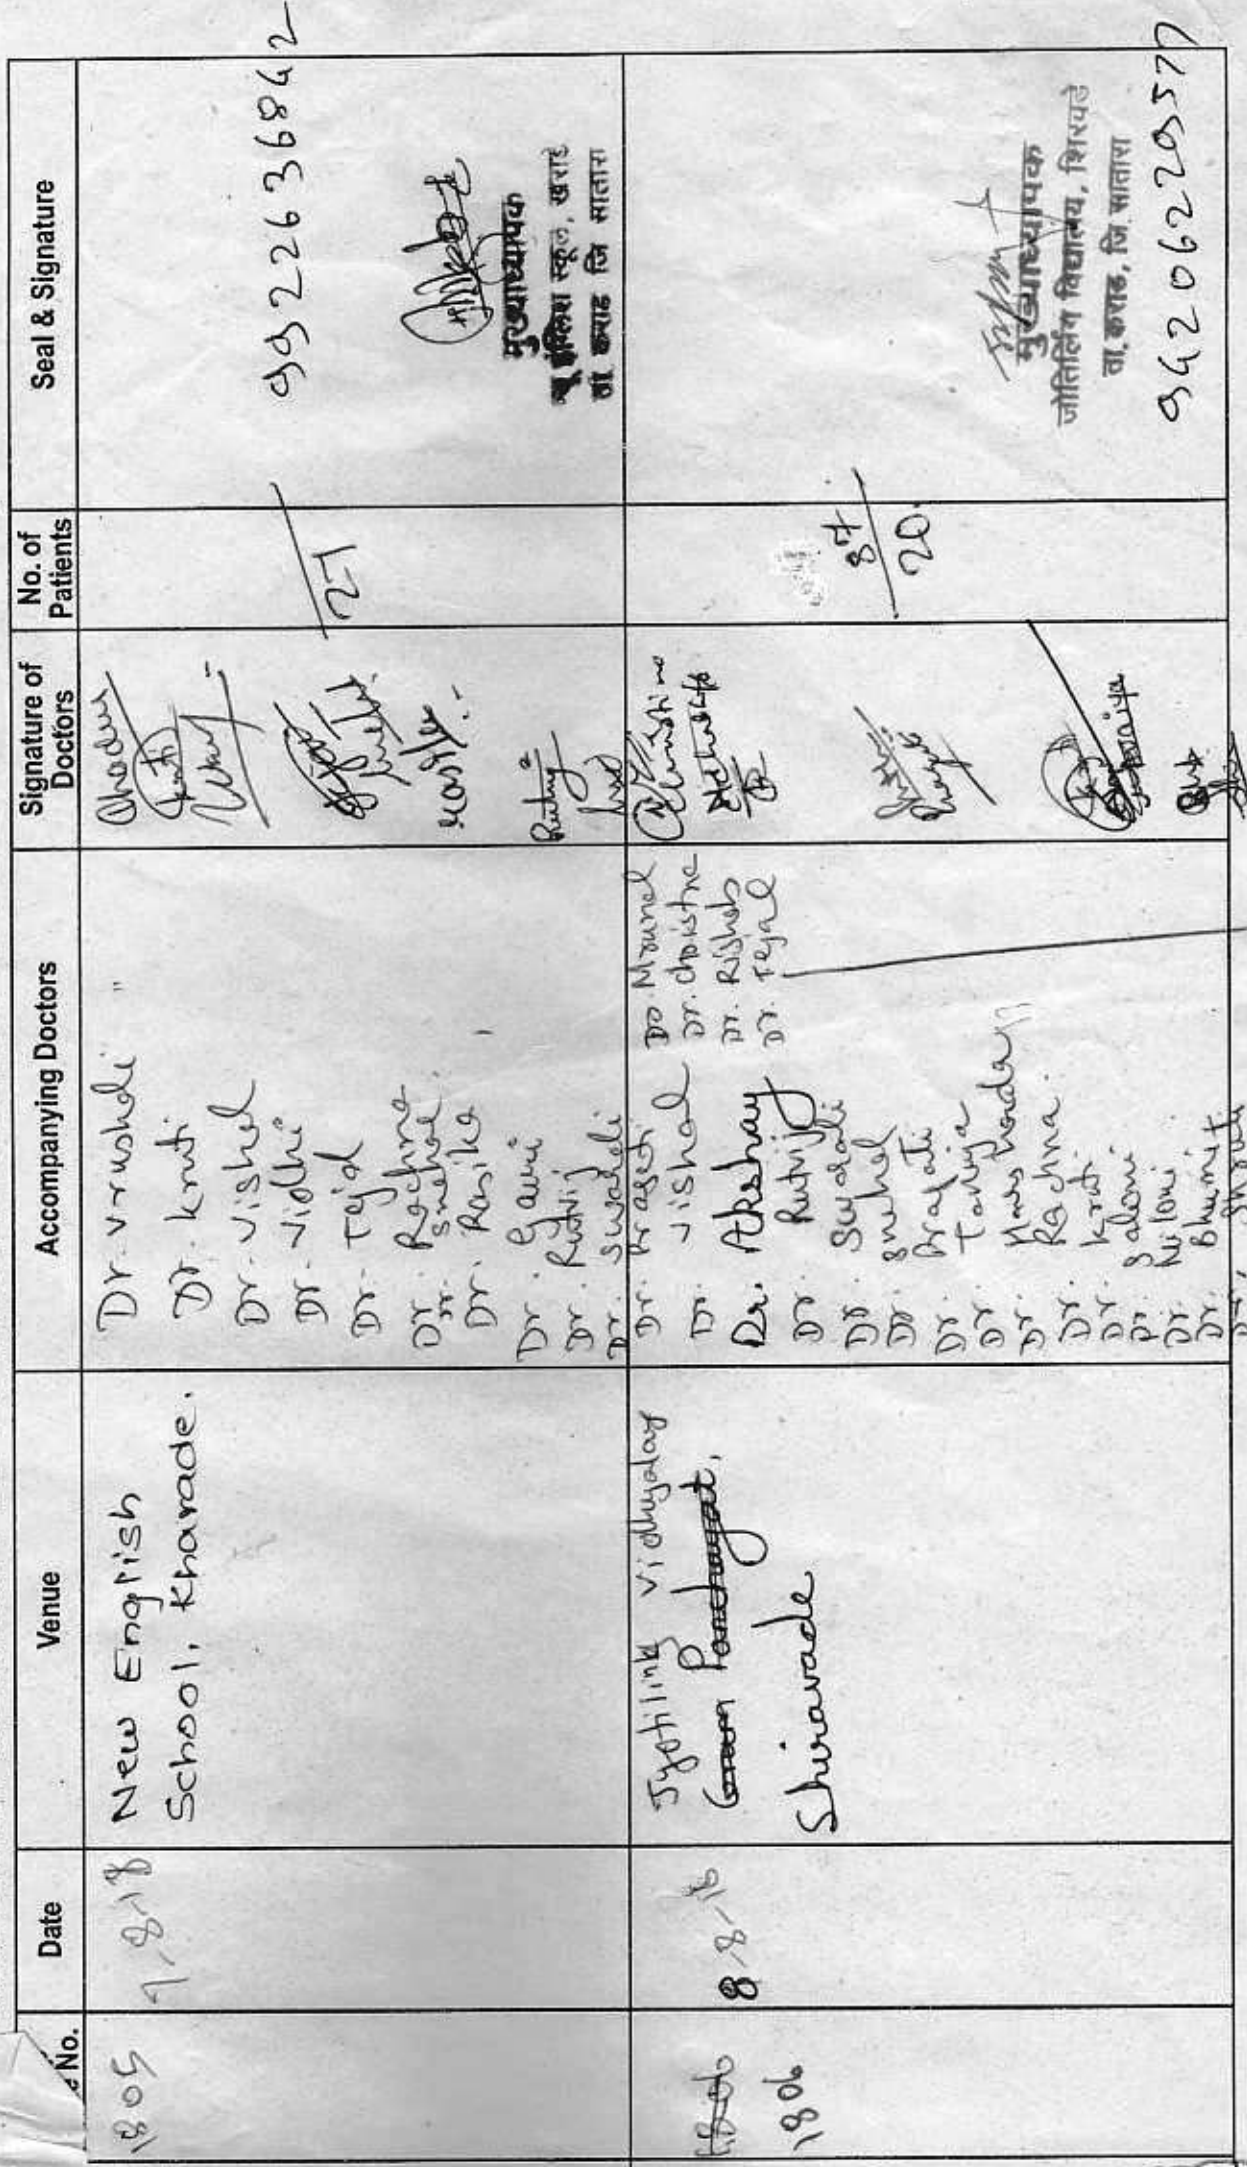 No.
Date
Venue
Accompanying Doctors
Signature of
Doctors
No. of
Patients
Seal & Signature
1805
7-8-18
New English
School, Kharade.
Dr. Vrushali
Dr. Kruti
Dr. Vishal
Dr. Vidhi
Dr. Tejal
Dr. Rachna
Dr. Snehal
Dr. Rasika
Dr. Gauri
Dr. Rutvij
Dr. Swarali
27
9922636842
मुख्याध्यापक
न्यू इंग्लिश स्कूल, खराडे
ता. कराड जि सातारा
1806
1806
8-8-18
Jyotiling Vidhyalay
Gram Panchayat,
Shiravade
Dr. Praseti
Dr. Vishal
Dr. Akshay
Dr. Rutvij
Dr. Swarali
Dr. Snehal
Dr. Pragati
Dr. Tanvija
Dr. Harshada
Dr. Rachna.
Dr. Kruti
Dr. Saloni
Dr. Niloni
Dr. Bhumit
Dr. Mrunal
Dr. Christine
Dr. Rishab
Dr. Tejal
87
20.
मुख्याध्यापक
जोतिर्लिंग विद्यालय, शिरवडे
ता. कराड, जि. सातारा
9420622957